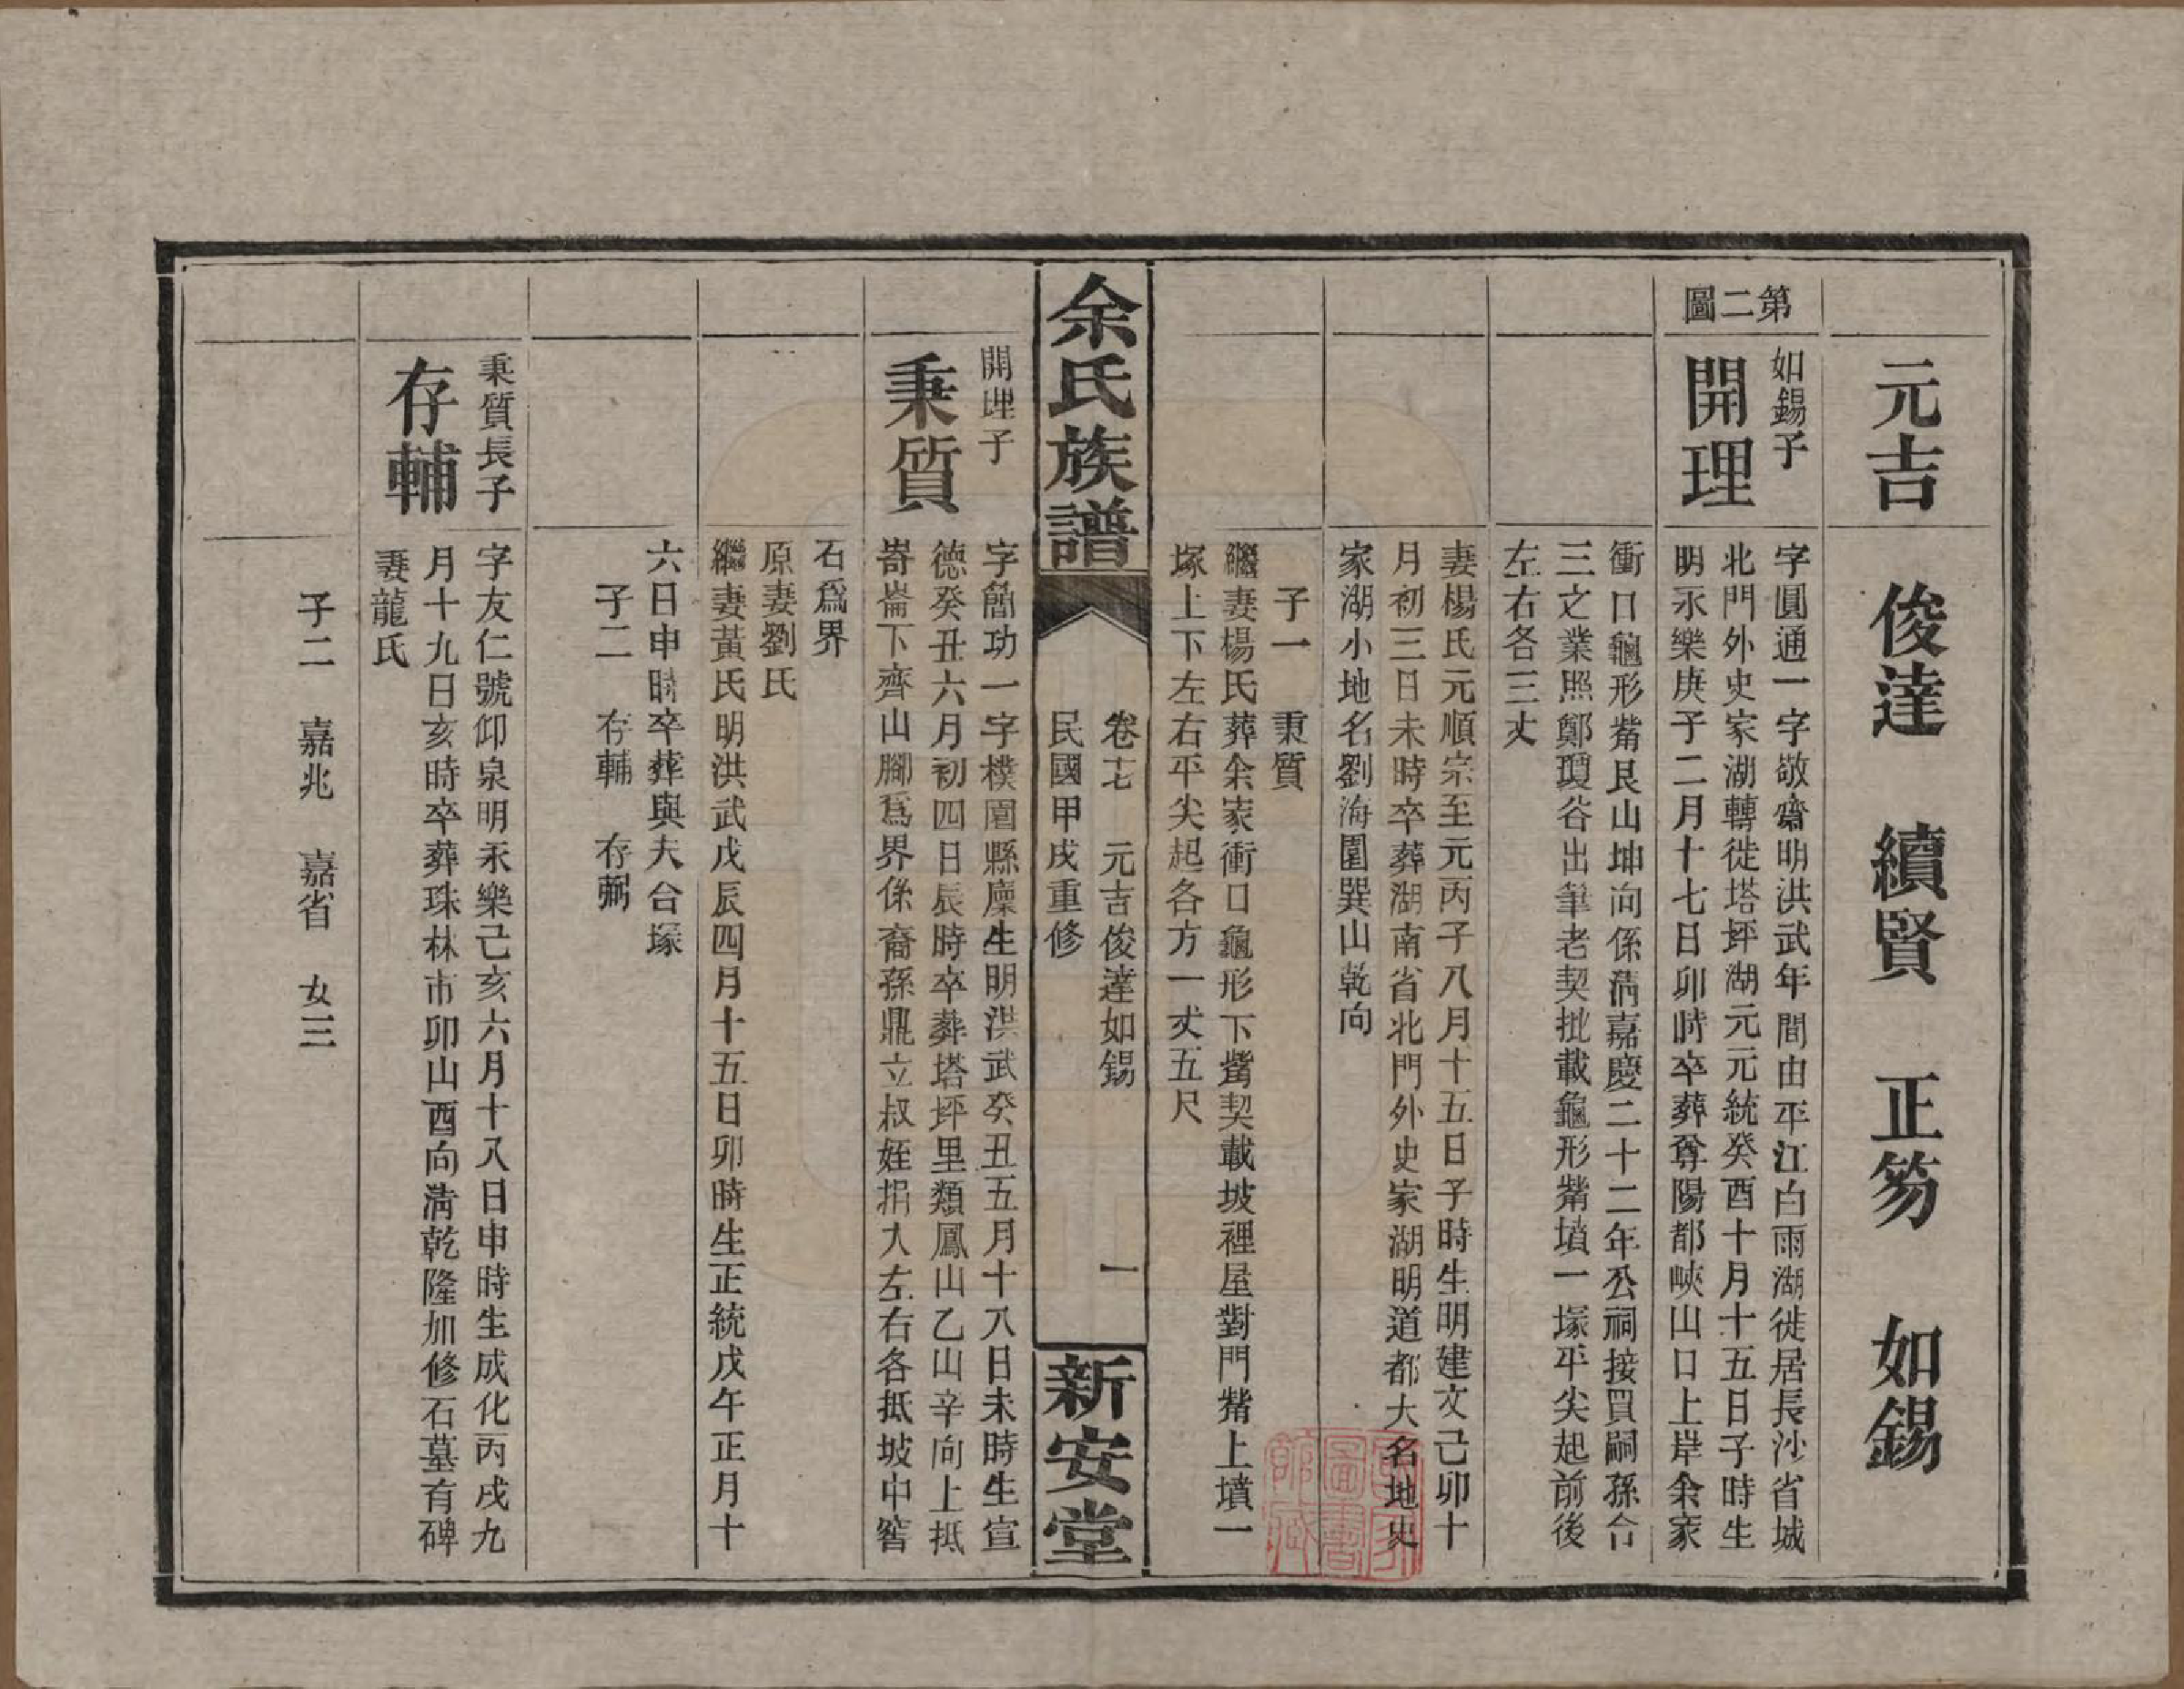 元吉 俊達 續賢 正笏 如錫
第二圖
如錫子
開理
字圓通一字敬齋明洪武年間由平江白雨湖徙居長沙省城
北門外史家湖轉徙塔坪湖元元統癸酉十月十五日子時生
明永樂庚子二月十七日卯時卒葬尊陽都峽山口上岸余家
衝口龜形觜艮山坤向係清嘉慶二十二年公祠接買嗣孫合
三之業照鄭瓊谷出筆老契批載龜形觜墳一塚平尖起前後
左右各三丈
妻楊氏元順宗至元丙子八月十五日子時生明建文己卯十
月初三日未時卒葬湖南省北門外史家湖明道都大名地史
家湖小地名劉海園巽山乾向
子一 秉質
繼妻楊氏葬余家衝口龜形下觜契載坡裡屋對門觜上墳一
塚上下左右平尖起各方一丈五尺
余氏族譜
卷十七 元吉俊達如錫 一
民國甲戌重修
新安堂
開理子
秉質
字簡功一字樸園縣廩生明洪武癸丑五月十八日未時生宣
德癸丑六月初四日辰時卒葬塔坪里類鳳山乙山辛向上抵
嵜崙下齊山腳爲界係裔孫鼎立叔姪捐入左右各抵坡中窖
石爲界
原妻劉氏
繼妻黃氏明洪武戊辰四月十五日卯時生正統戊午正月十
六日申時卒葬與夫合塚
子二 存輔 存弼
秉質長子
存輔
字友仁號仰泉明永樂己亥六月十八日申時生成化丙戌九
月十九日亥時卒葬珠林市卯山酉向清乾隆加修石墓有碑
妻龍氏
子二 嘉兆 嘉省 女三